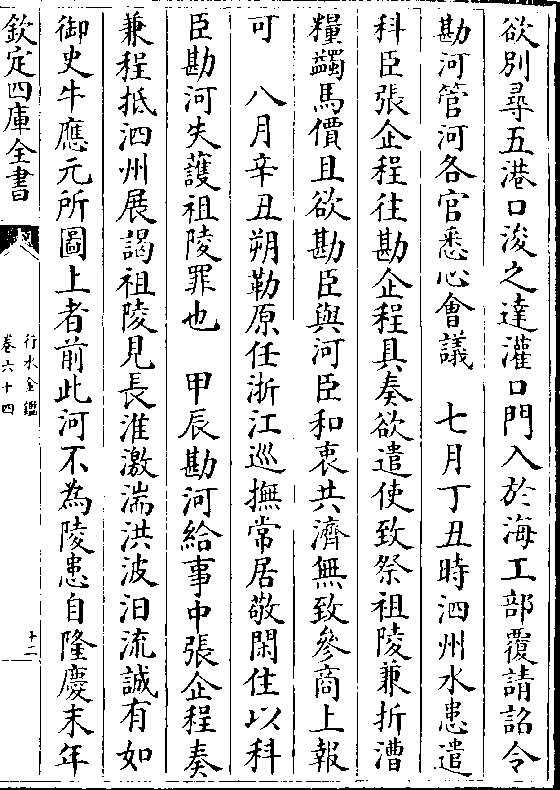 欲別尋五港口浚之達灌口門入於海工部覆請詔令
勘河管河各官悉心會議　七月丁丑時泗州水患遣
科臣張企程往勘企程具奏欲遣使致祭祖陵兼折漕
糧蠲馬價且欲勘臣與河臣和衷共濟無致參商上報
可　八月辛丑朔勒原任浙江巡撫常居敬閑住以科
臣勘河失護祖陵罪也　甲辰勘河給事中張企程奏
兼程抵泗州展謁祖陵見長淮激湍洪波汩流誠有如
御史牛應元所圖上者前此河不為陵患自隆慶末年
欽定四庫全書
行水金鑑
卷六十四
十二